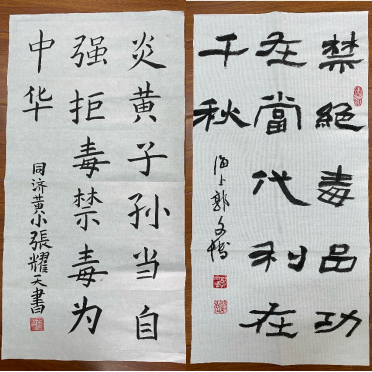 炎黄子孙当自
强拒毒禁毒为
中华
同济黄小張耀天書
禁絕毒品功
在當代利在
千秋
海上郭文